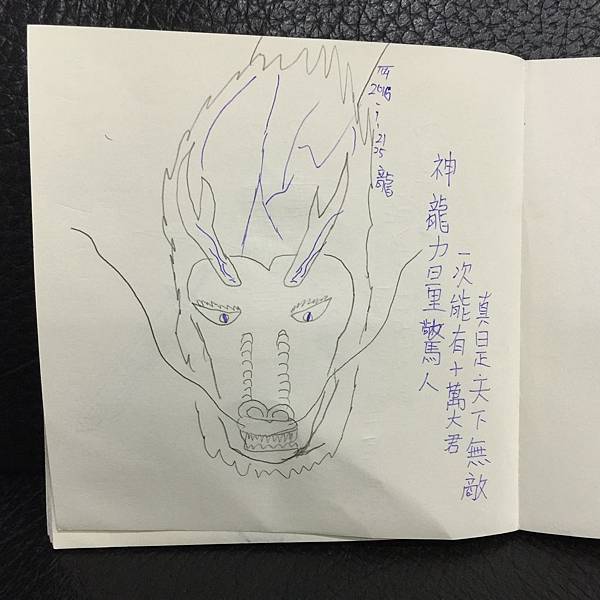 2016
1
21
25
龍
神龍力量驚人
一次能有十萬大君
真是天下無敵